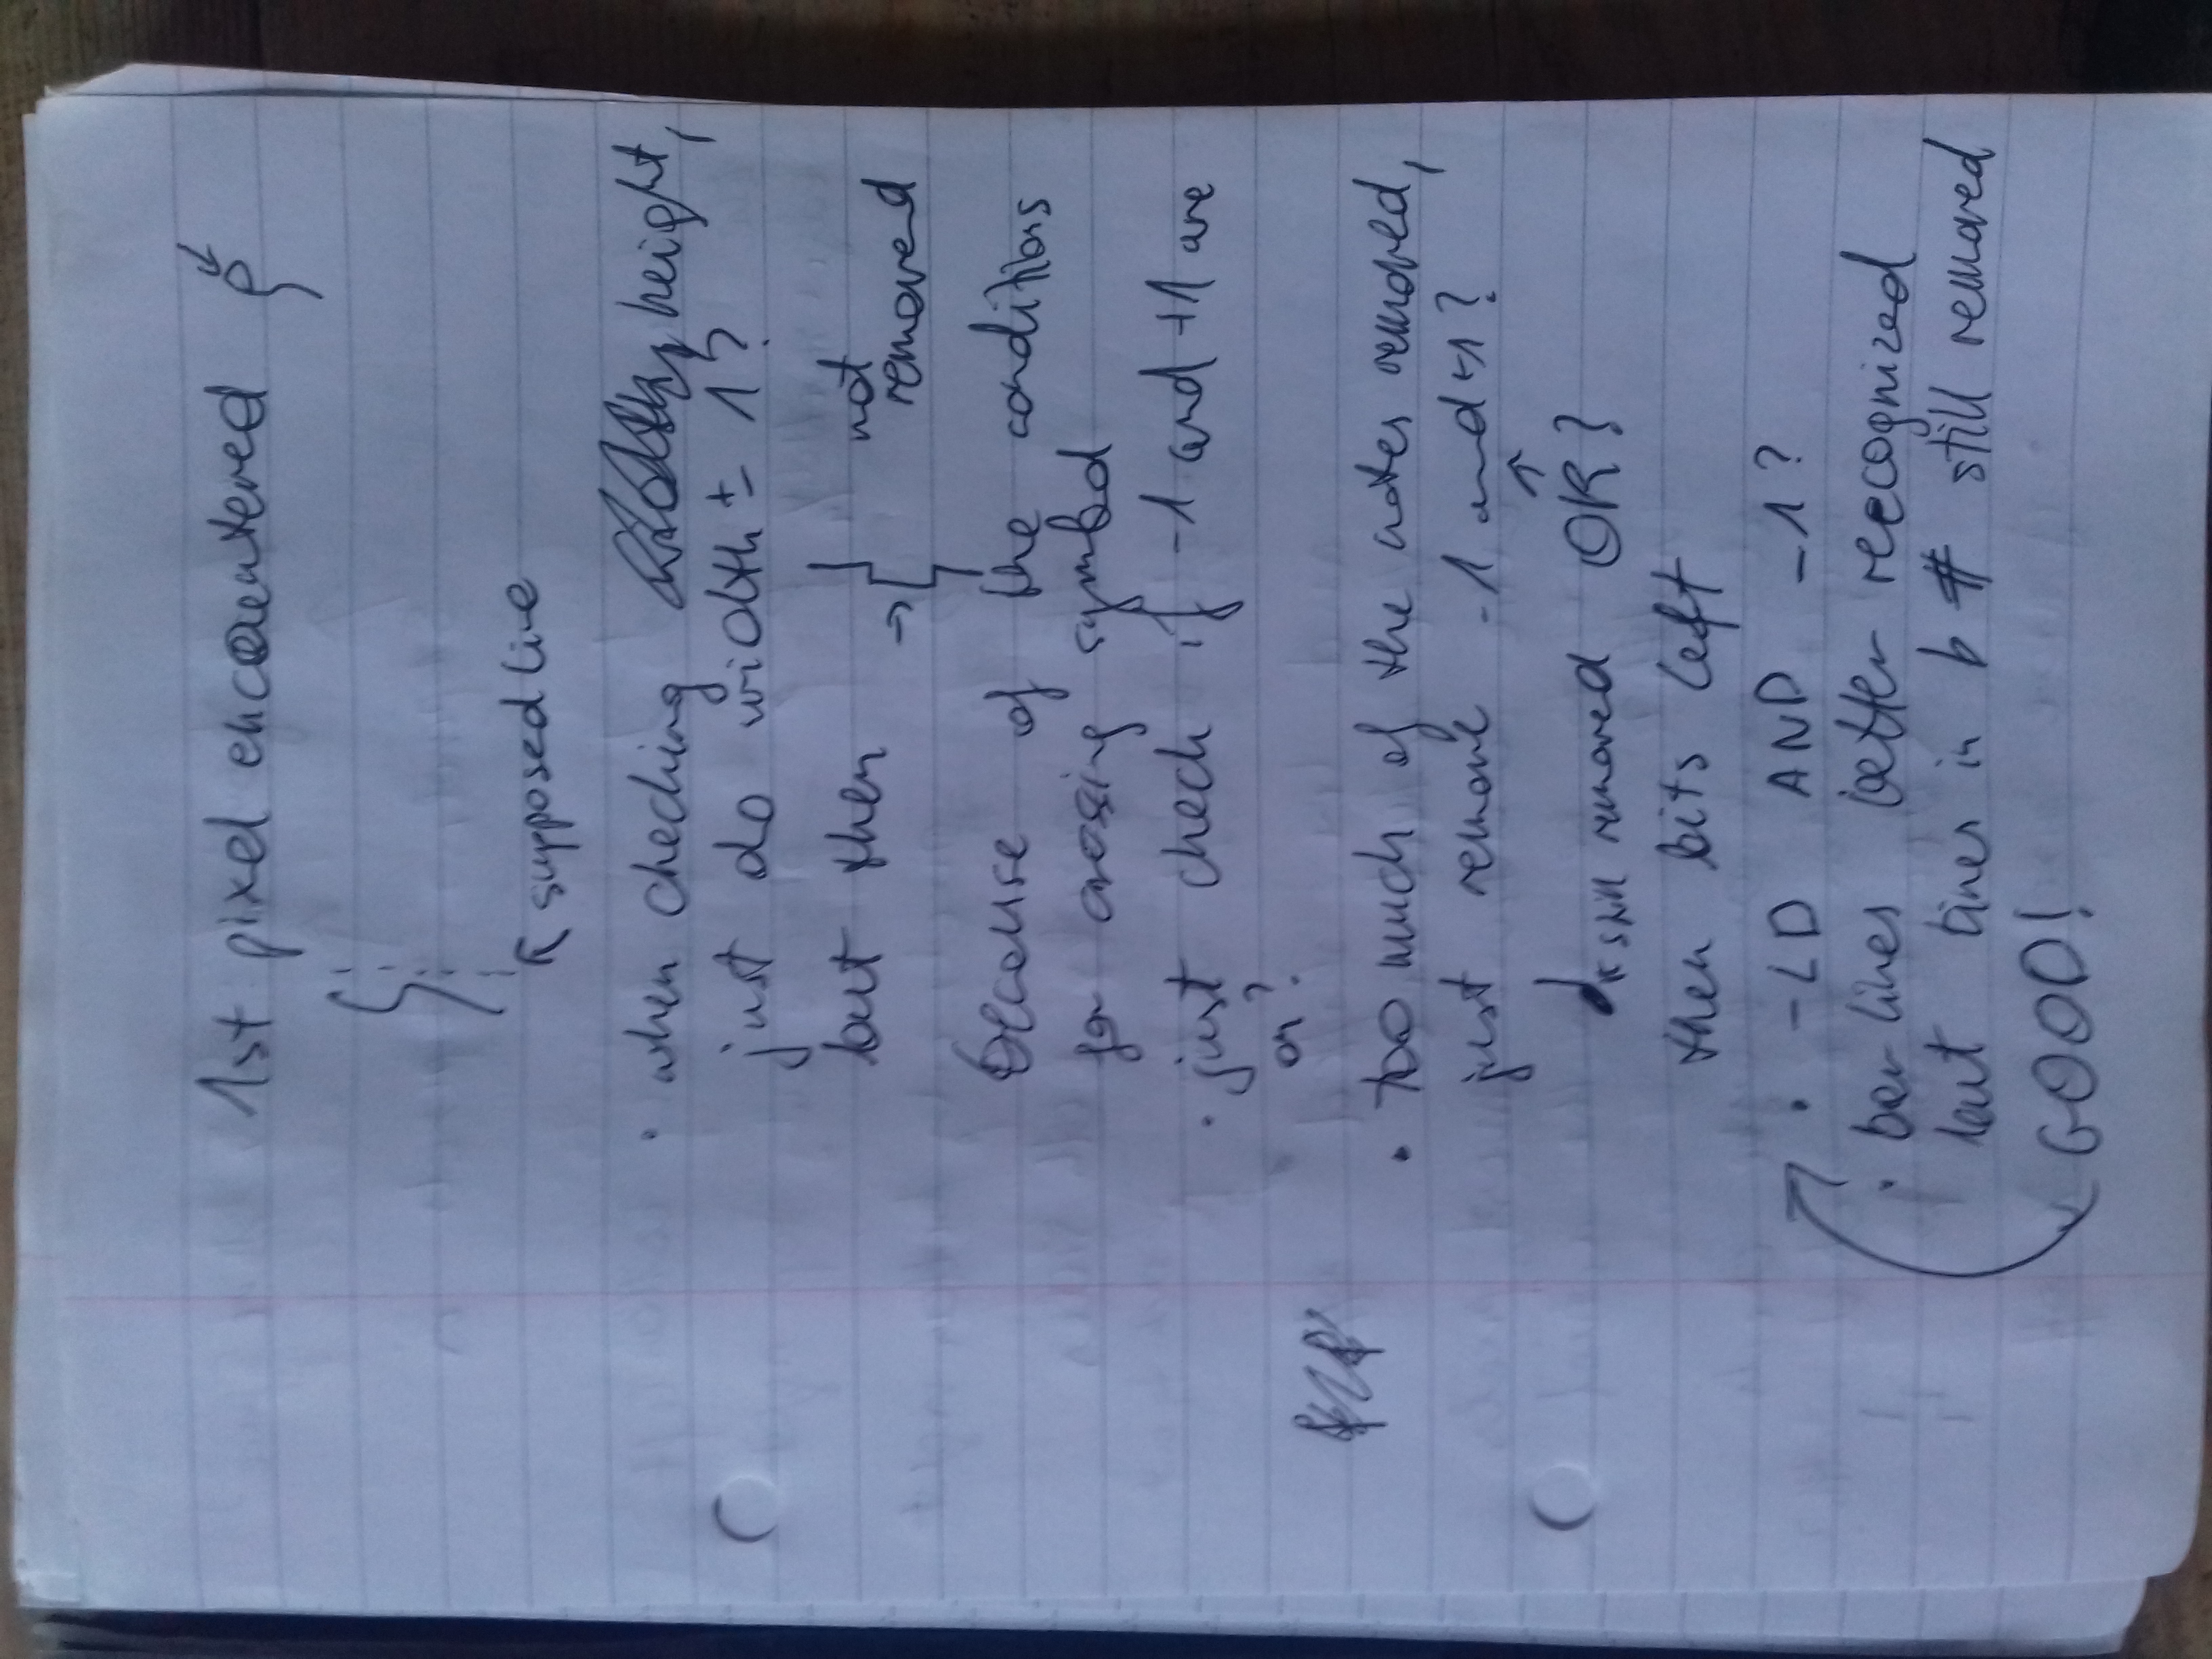 1st pixel encountered
supposed line
· when checking height,
just do width ± 1?
but then → not
removed
because of the conditions
for crossing symbol
· just check if -1 and +1 are
on?
· too much of the notes removed,
just remove -1 and +1?
still removed OK?
then bits left
· -LD AND -1?
· bar lines better reecognized
but lines in b # still removed
GOOD!